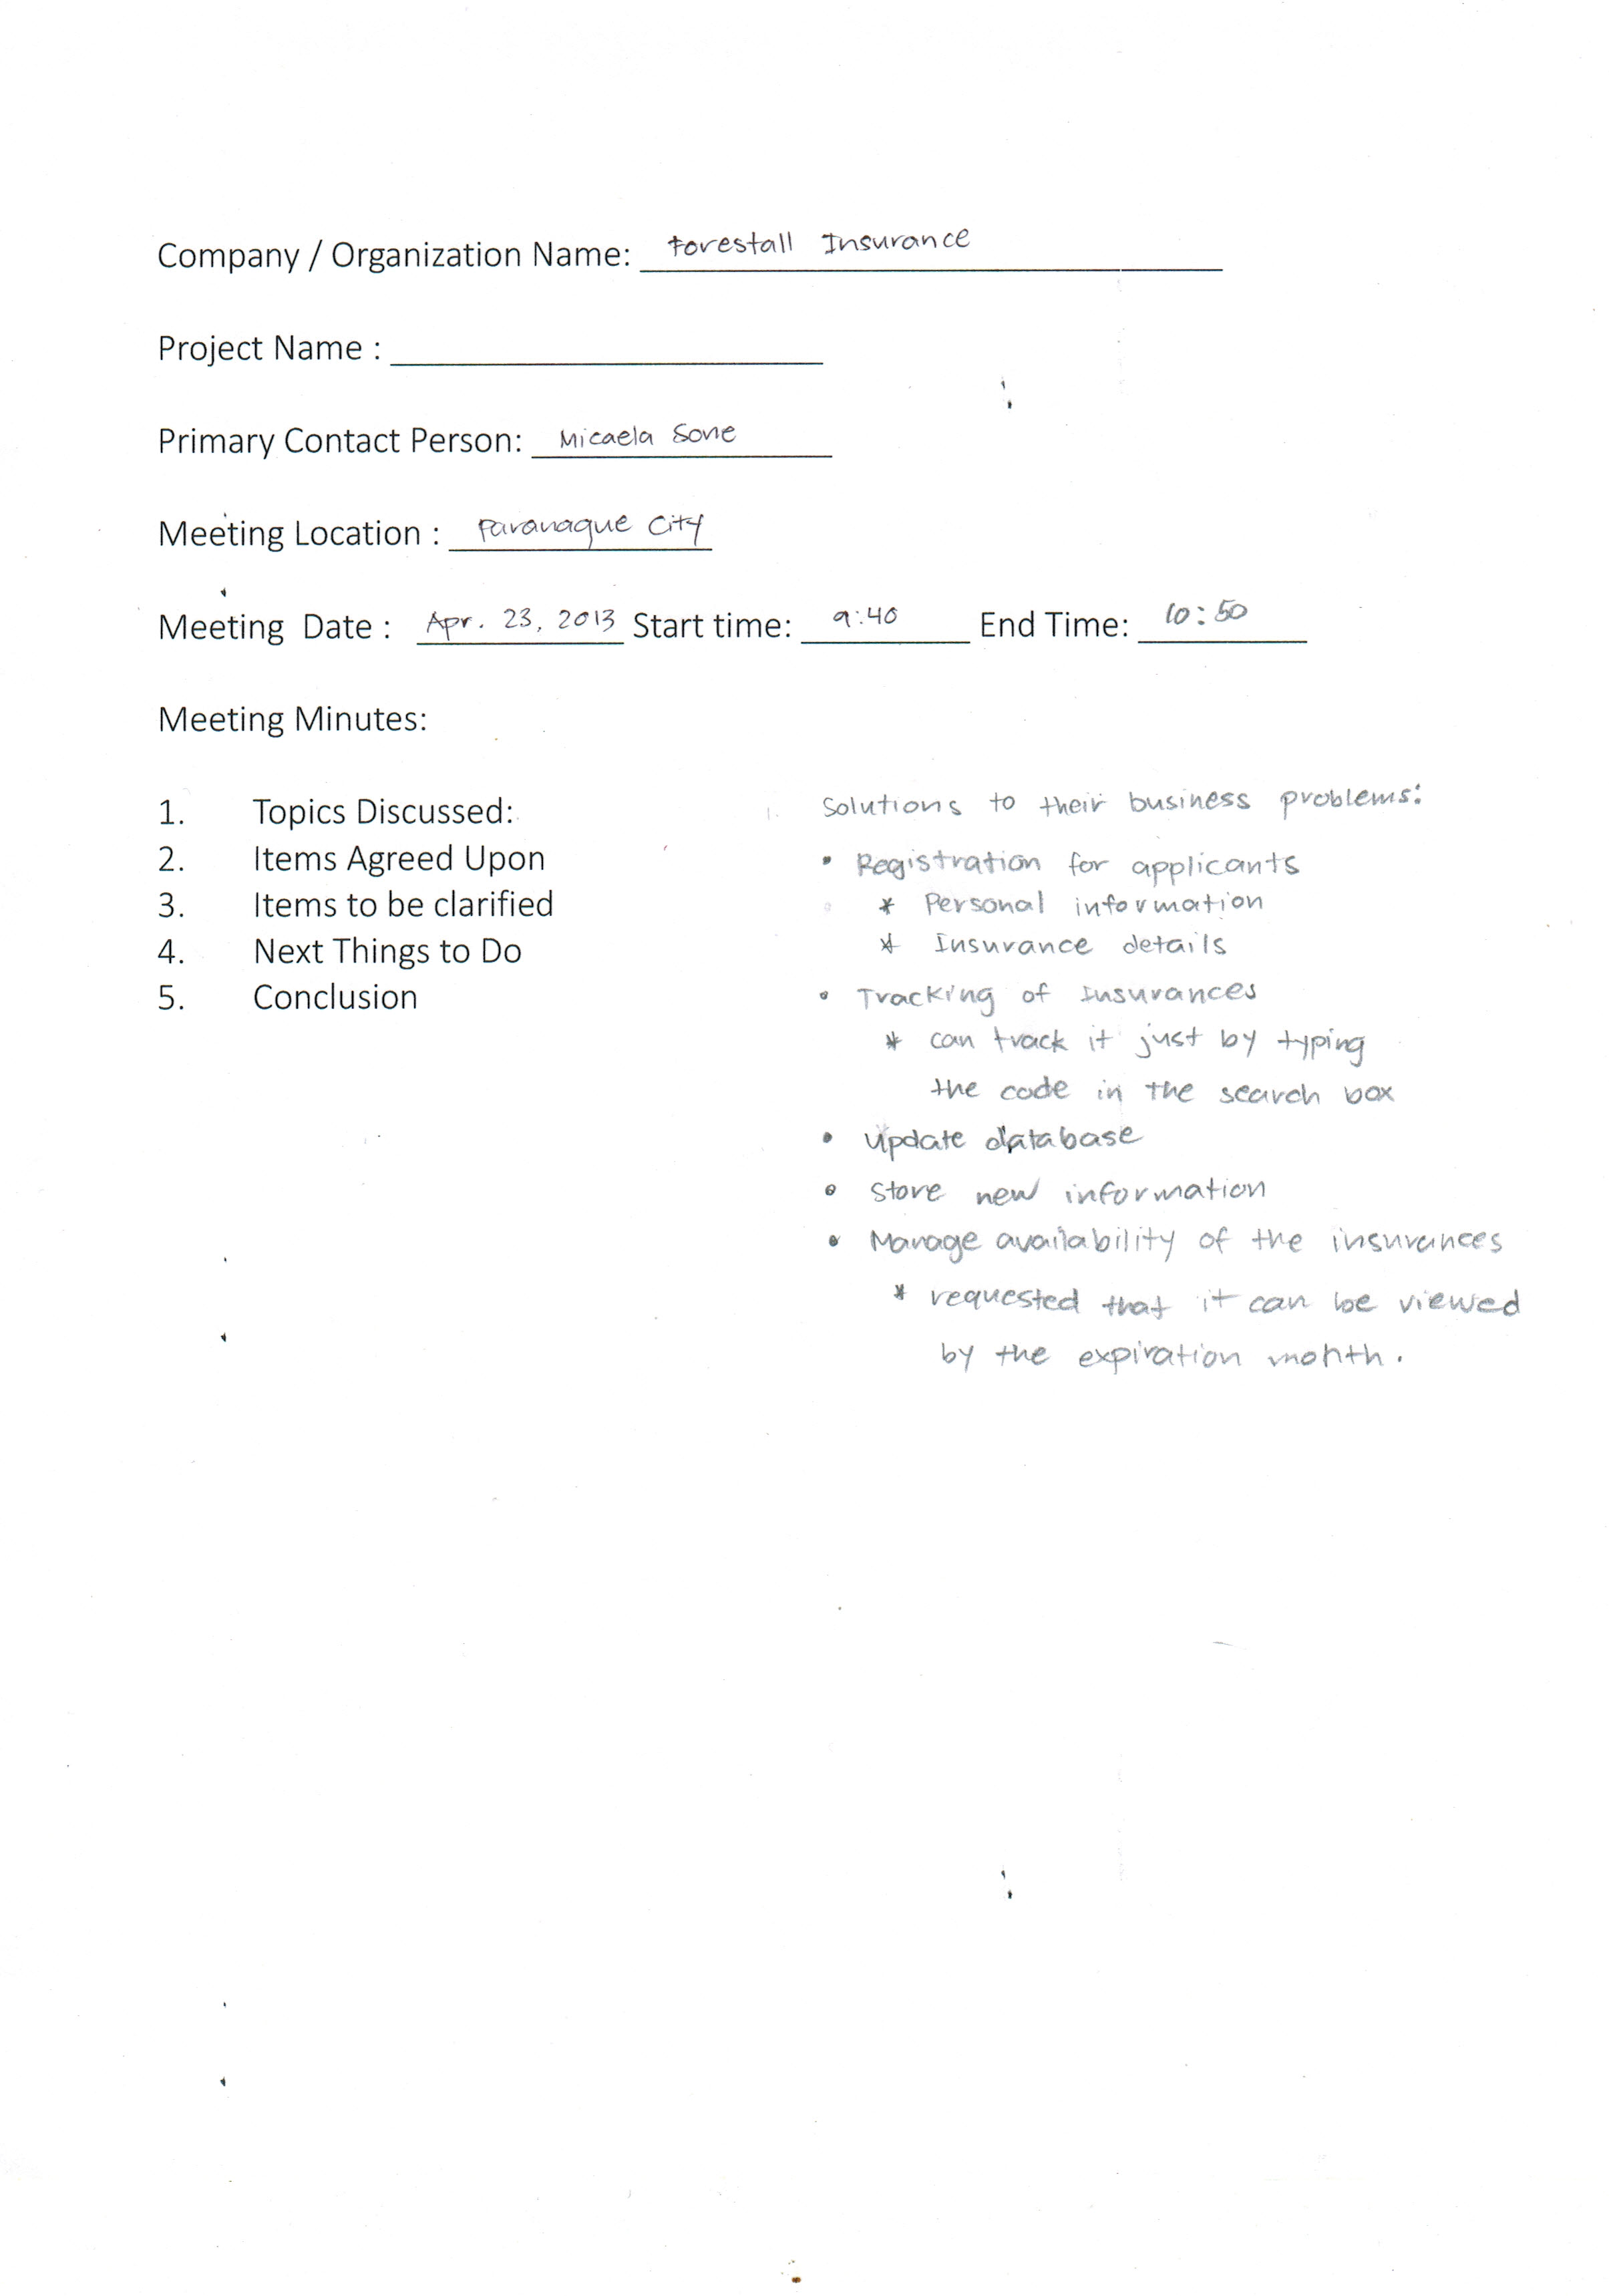 Company / Organization Name: Forestall Insurance
Project Name :
Primary Contact Person: Micaela Sone
Meeting Location : Paranaque City
Meeting Date : Apr. 23, 2013 Start time: 9:40 End Time: 10:50
Meeting Minutes:
1. Topics Discussed:
2. Items Agreed Upon
3. Items to be clarified
4. Next Things to Do
5. Conclusion
Solutions to their business problems:
• Registration for applicants
* Personal information
* Insurance details
• Tracking of Insurances
* can track it just by typing
the code in the search box
• Update database
• Store new information
• Manage availability of the insurances
* requested that it can be viewed
by the expiration month.